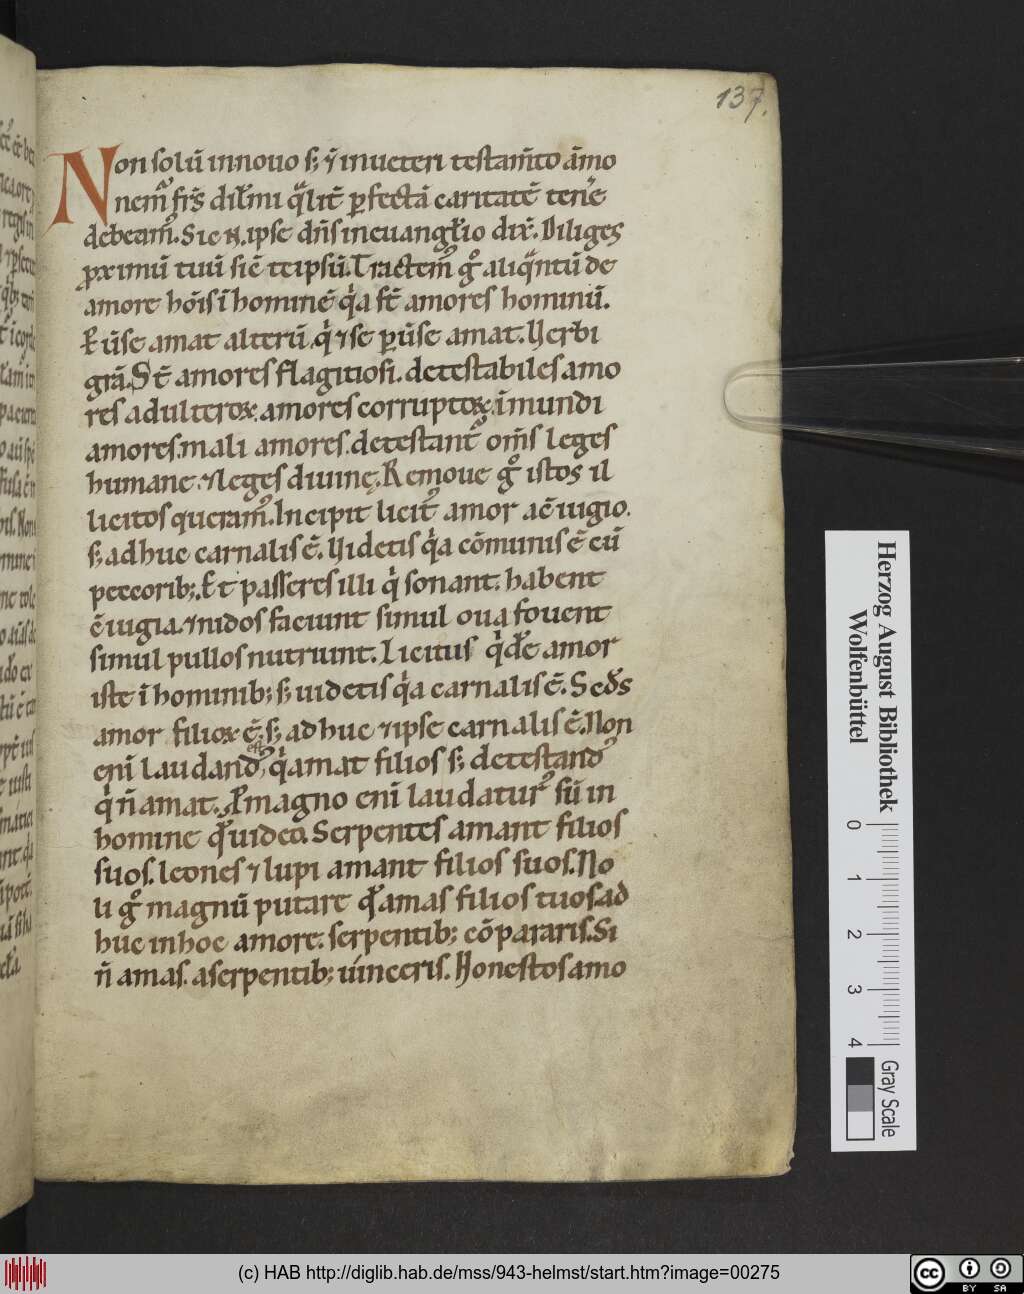 137.
Non solū in nouo s; ⁊ in ueteri testam̄to ām̄o
nemur fr̄s dil̄mi qͣlit̄ ꝑfectā caritatē ten̄e
debeam᷒. Sic .n. ipse dn̄s in euangl̄io dix̄. Diliges
ꝓximū tuū sic̄ teipsū. Tractem᷒ gͦ aliqͣntū de
amore hōis ī hominē qͥa st̄ amores hominū.
Et ūse amat alterū, qͥ ⁊ se ꝑūse amat. Uerbi
grā. St̄ amores flagitiosi. detestabiles amo
res adulteroꝝ. amores corruptoꝝ. īmundi
amores. mali amores. detestant᷑ om̄s leges
humane. ⁊ leges diuinę. Remoue gͦ istos il
licitos queram᷒. Incipit licit᷒ amor a c̄iugio.
s; adhuc carnalis ē. Uidetis qͥa cōmunis ē cū
peccorib;. Et passeres illi qͥ sonant. habent
c̄iugia. ⁊ nidos faciunt simul oua fouent
simul pullos nutriunt. Licitus qͥdē amor
iste ī hominib; s; uidetis qͥa carnalis ē. Scd̄s
amor filioꝝ ē. s; adhuc ⁊ ipse carnalis ē. Non
enī laudand᷒ est qͥ amat filios s; detestand᷒
qͥ n̄ amat. Ꝓ magno enī laudatur᷒ sū in
homine qͩ uideo. Serpentes amant filios
suos. leones ⁊ lupi amant filios suos. No
li gͦ magnū putare qͩ amas filios tuos. ad
huc in hoc amore. serpentib; cōpararis. Si
n̄ amas. a serpentib; uinceris. Honestos amo
Herzog August Bibliothek
Wolfenbüttel
0 1 2 3 4
Gray Scale
(c) HAB http://diglib.hab.de/mss/943-helmst/start.htm?image=00275
cc BY SA